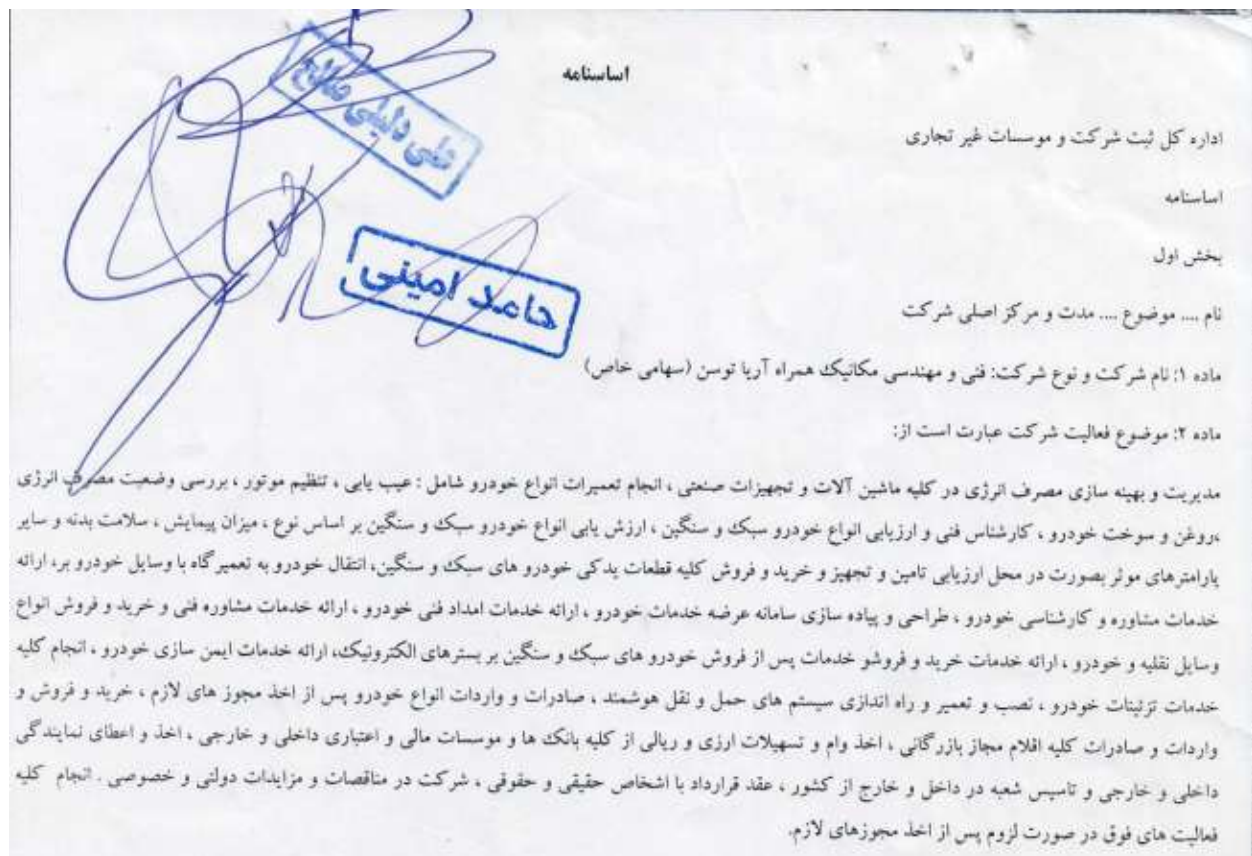 اساسنامه
علی دلیلی صالح
اداره کل ثبت شرکت و موسسات غیر تجاری
اساسنامه
بخش اول
حامد امینی
نام .... موضوع .... مدت و مرکز اصلی شرکت
ماده ۱: نام شرکت و نوع شرکت: فنی و مهندسی مکانیک همراه آریا توسن (سهامی خاص)
ماده ۲: موضوع فعالیت شرکت عبارت است از:
مدیریت و بهینه سازی مصرف انرژی در کلیه ماشین آلات و تجهیزات صنعتی ، انجام تعمیرات انواع خودرو شامل : عیب یابی ، تنظیم موتور ، بررسی وضعیت مصرف انرژی
،روغن و سوخت خودرو ، کارشناس فنی و ارزیابی انواع خودرو سبک و سنگین ، ارزش یابی انواع خودرو سبک و سنگین بر اساس نوع ، میزان پیمایش ، سلامت بدنه و سایر
پارامترهای موثر بصورت در محل ارزیابی تامین و تجهیز و خرید و فروش کلیه قطعات یدکی خودرو های سبک و سنگین، انتقال خودرو به تعمیر گاه با وسایل خودرو بر، ارائه
خدمات مشاوره و کارشناسی خودرو ، طراحی و پیاده سازی سامانه عرضه خدمات خودرو ، ارائه خدمات امداد فنی خودرو ، ارائه خدمات مشاوره فنی و خرید و فروش انواع
وسایل نقلیه و خودرو ، ارائه خدمات خرید و فروشو خدمات پس از فروش خودرو های سبک و سنگین بر بسترهای الکترونیک، ارائه خدمات ایمن سازی خودرو ، انجام کلیه
خدمات تزئینات خودرو ، نصب و تعمیر و راه اندازی سیستم های حمل و نقل هوشمند ، صادرات و واردات انواع خودرو پس از اخذ مجوز های لازم ، خرید و فروش و
واردات و صادرات کلیه اقلام مجاز بازرگانی ، اخذ وام و تسهیلات ارزی و ریالی از کلیه بانک ها و موسسات مالی و اعتباری داخلی و خارجی ، اخذ و اعطای نمایندگی
داخلی و خارجی و تاسیس شعبه در داخل و خارج از کشور ، عقد قرارداد با اشخاص حقیقی و حقوقی ، شرکت در مناقصات و مزایدات دولتی و خصوصی . انجام کلیه
فعالیت های فوق در صورت لزوم پس از اخذ مجوزهای لازم.